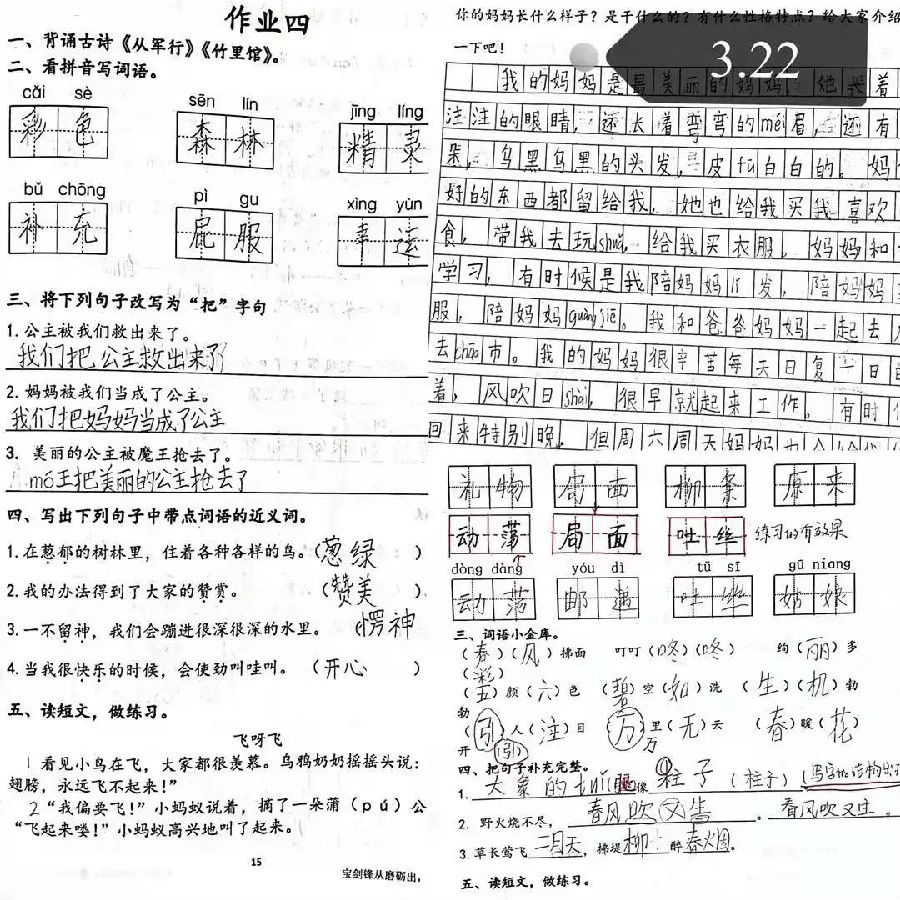 作业四
一、背诵古诗《从军行》《竹里馆》。
二、看拼音写词语。
cǎi sè
sēn lín
jīng líng
彩色
森林
精灵
bǔ chōng
pì gu
xìng yùn
补充
屁股
幸运
三、将下列句子改写为“把”字句
1.公主被我们救出来了。
我们把公主救出来了
2.妈妈被我们当成了公主。
我们把妈妈当成了公主
3. 美丽的公主被魔王抢去了。
mó王把美丽的公主抢去了
四、写出下列句子中带点词语的近义词。
1.在葱郁的树林里，住着各种各样的鸟。（葱绿）
2.我的办法得到了大家的赞赏。（赞美）
3.一不留神，我们会蹦进很深很深的水里。（愣神
4.当我很快乐的时候，会使劲叫哇叫。（开心）
五、读短文，做练习。
飞呀飞
1 看见小鸟在飞，大家都很羡慕。乌鸦奶奶摇摇头说：
翅膀，永远飞不起来！”
2 “我偏要飞！”小蚂蚁说着，摘了一朵蒲（pú）公
“飞起来喽！”小蚂蚁高兴地叫了起来。
15
宝剑锋从磨砺出，
你的妈妈长什么样子？是干什么的？有什么性格特点？给大家介绍
一下吧！
3.22
我的妈妈是最美丽的妈妈，她长着
注注的眼睛，还长着弯弯的méi眉，还有
朵，乌黑乌黑的头发，皮fū白白的。妈
好的东西都留给我，她也给我买我喜欢
食，带我去玩shuǎ，给我买衣服，妈妈和
学习，有时候是我陪妈妈lǐ发，陪妈妈
服，陪妈妈guàngjiē。我和爸爸妈妈一起去
去chāo市。我的妈妈很辛苦每天日复一日
着，风吹日shài，很早就起来工作。有时
回来特别晚，但周六周天妈妈也
礼物 局面 柳条 原来
动荡 局面 吐丝 练习的有效果
dòng dàng yóu dì tǔ sī gū niang
动荡 邮递 吐丝 姑娘
三、词语小金库。
（春）（风）拂面 叮叮（咚）（咚） 约（丽）多
（彩）
（五）颜（六）色 （碧）空（如）洗 （生）（机）勃
勃
（引）人（注）目 （万）里（无）云 （春）暖（花）
开 （引） 万
四、把句子补充完整。
1. 大象的tuǐ像柱子（柱子）
2. 野火烧不尽， 春风吹又生 . 春风吹又生 。
3 草长莺飞 二月天， 拂堤 柳 醉 春烟 。
五、读短文，做练习。